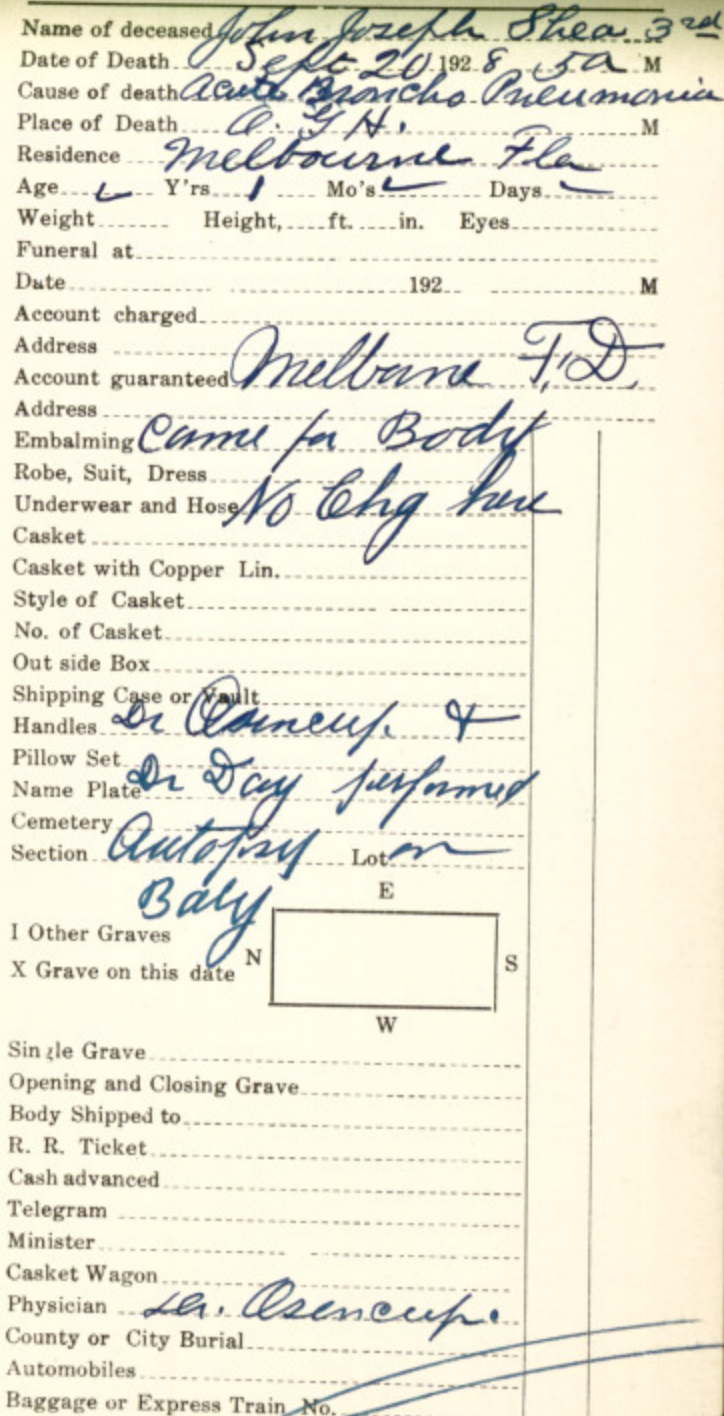 Name of deceased John Joseph Shea 3rd
Date of Death Sept 20 1928 5a M
Cause of death Acute Broncho Pneumonia
Place of Death O. G H. M
Residence Melbourne Fla
Age Y'rs 1 Mo's Days
Weight Height, ft. in. Eyes
Funeral at
Date 192 M
Account charged
Address
Account guaranteed Melbourne F.D.
Address
Embalming Came for Body
Robe, Suit, Dress
Underwear and Hose No Chg here
Casket
Casket with Copper Lin.
Style of Casket
No. of Casket
Out side Box
Shipping Case or Vault
Handles Dr Osencup. &
Pillow Set
Name Plate Dr Day performed
Cemetery
Section Autopsy Lot on
Baby
E
I Other Graves
X Grave on this date N S
W
Single Grave
Opening and Closing Grave
Body Shipped to
R. R. Ticket
Cash advanced
Telegram
Minister
Casket Wagon
Physician Dr. Osencup.
County or City Burial
Automobiles
Baggage or Express Train No.